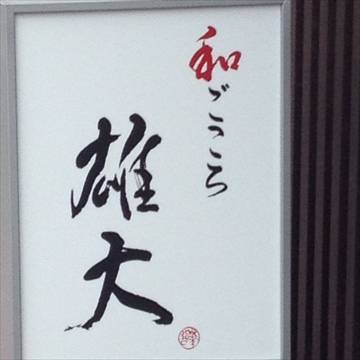 和ごころ
雄大